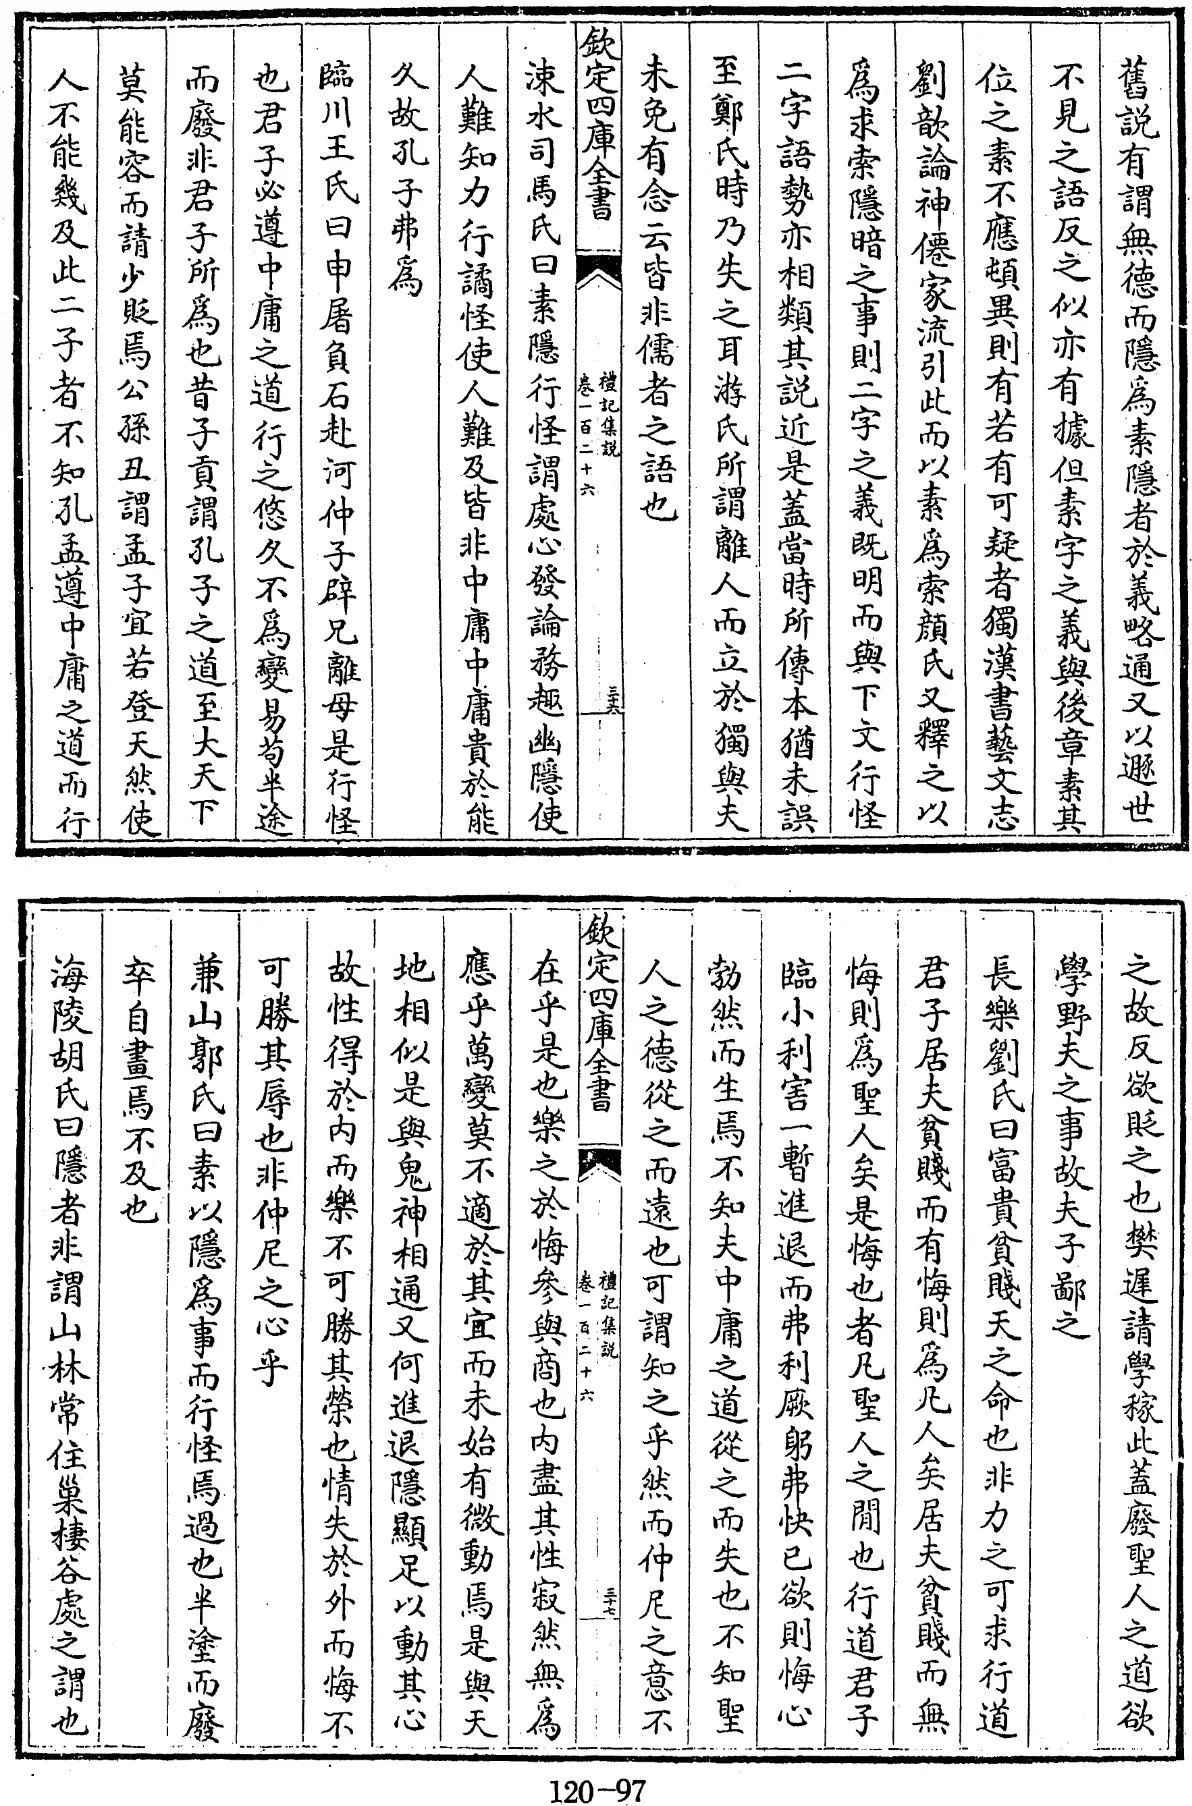 舊説有謂無德而隱爲素隱者於義略通又以遯世
不見之語反之似亦有據但素字之義與後章素其
位之素不應頓異則有若有可疑者獨漢書藝文志
劉歆論神僊家流引此而以素爲索顔氏又釋之以
爲求索隱暗之事則二字之義既明而與下文行怪
二字語勢亦相類其説近是蓋當時所傳本猶未誤
至鄭氏時乃失之耳游氏所謂離人而立於獨與夫
未免有念云皆非儒者之語也
欽定四庫全書
禮記集説
卷一百二十六
三十六
涑水司馬氏曰素隱行怪謂處心發論務趣幽隱使
人難知力行譎怪使人難及皆非中庸中庸貴於能
久故孔子弗爲
臨川王氏曰申屠負石赴河仲子辟兄離母是行怪
也君子必遵中庸之道行之悠久不爲變易茍半途
而廢非君子所爲也昔子貢謂孔子之道至大天下
莫能容而請少貶焉公孫丑謂孟子宜若登天然使
人不能幾及此二子者不知孔孟遵中庸之道而行
之故反欲貶之也樊遲請學稼此蓋廢聖人之道欲
學野夫之事故夫子鄙之
長樂劉氏曰富貴貧賤天之命也非力之可求行道
君子居夫貧賤而有悔則爲凡人矣居夫貧賤而無
悔則爲聖人矣是悔也者凡聖人之閒也行道君子
臨小利害一暫進退而弗利厥躬弗快已欲則悔心
勃然而生焉不知夫中庸之道從之而失也不知聖
人之德從之而遠也可謂知之乎然而仲尼之意不
欽定四庫全書
禮記集説
卷一百二十六
三十七
在乎是也樂之於悔參與商也内盡其性寂然無爲
應乎萬變莫不適於其宜而未始有微動焉是與天
地相似是與鬼神相通又何進退隱顯足以動其心
故性得於内而樂不可勝其榮也情失於外而悔不
可勝其辱也非仲尼之心乎
兼山郭氏曰素以隱爲事而行怪焉過也半塗而廢
卒自畫焉不及也
海陵胡氏曰隱者非謂山林常住巢棲谷處之謂也
120-97